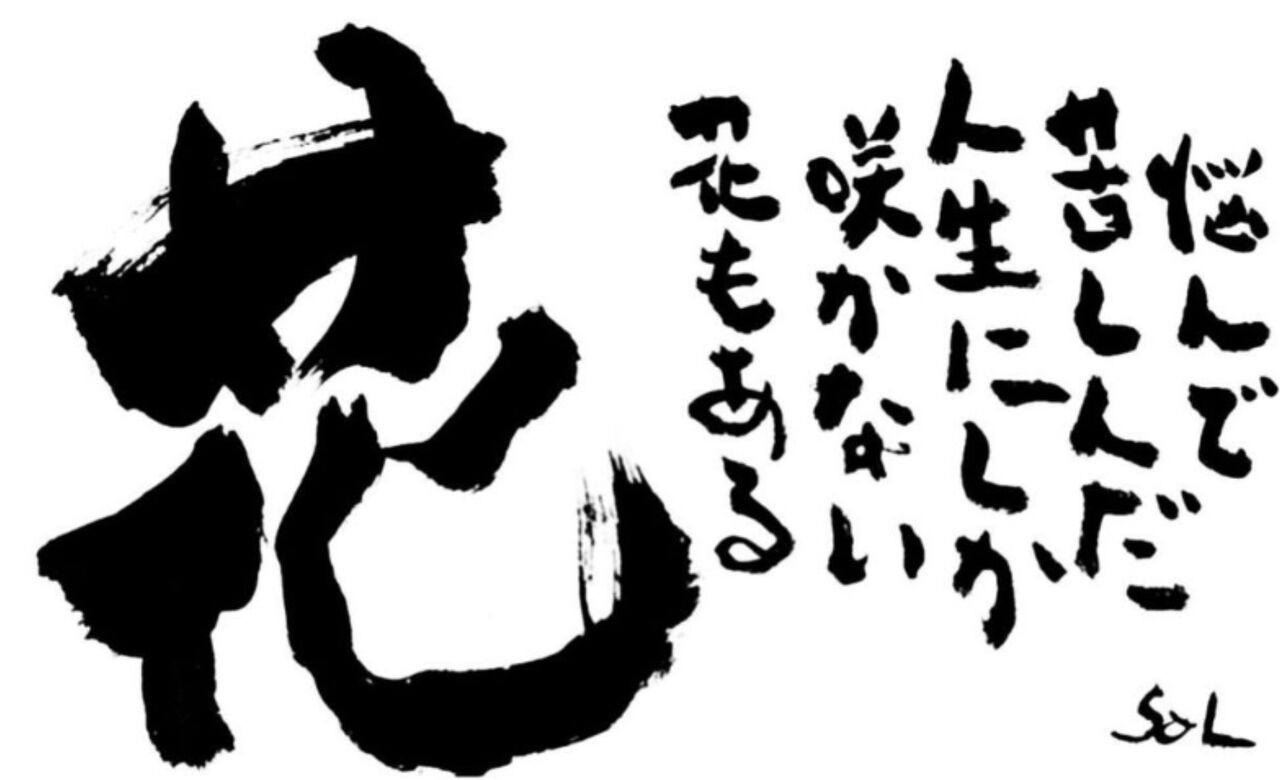 悩んで
苦しんだ
人生にしか
咲かない
花もある
花
SOL